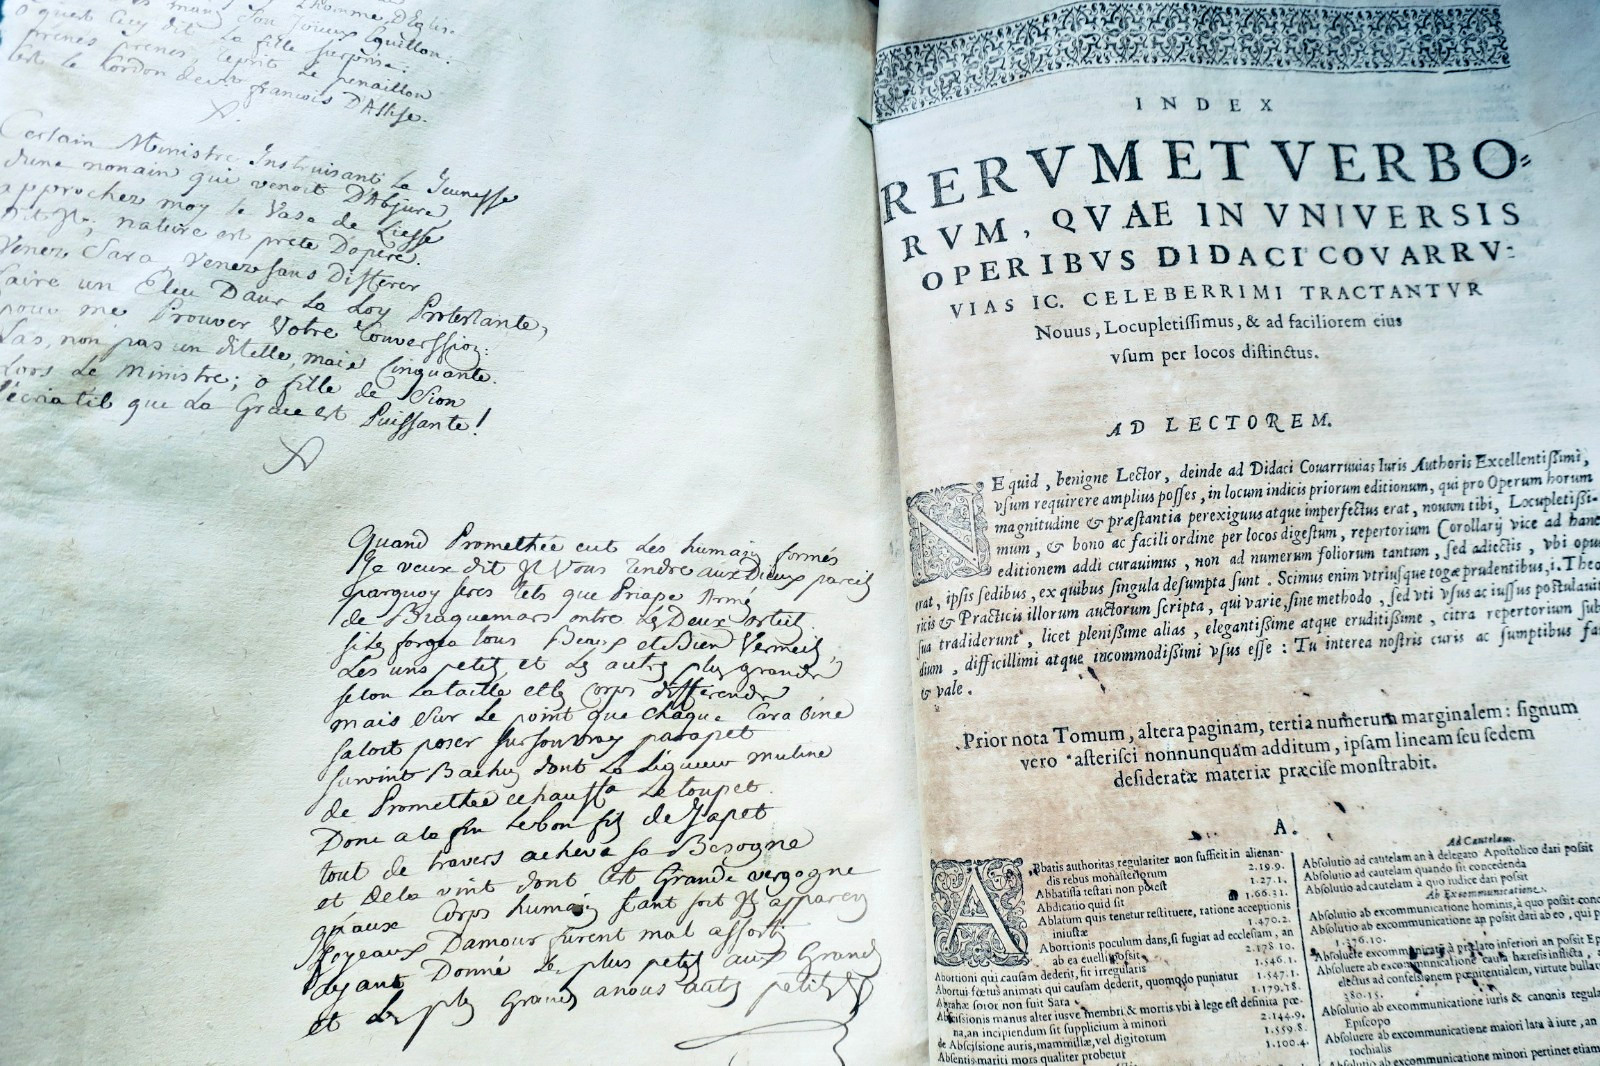 o quest Cecy dit La fille surprise:
prenés prenés, reprit Le penaillon
C'est le Cordon de St françois D'Assise.
Certain Ministre Instruisant La Jeunesse
dune nonain qui venoit D'Abjurer,
approchez moy le Vase de Liesse
Dit Il; nature est prete D'operer.
Venez Sara venez sans Differer
faire un Eleu Dans La Loy Protestante,
pour me Prouver Votre Converssion:
Las, non pas un ditelle, mais Cinquante.
Lors Le Ministre; o fille de Sion
s'écria til que La Grace est Puissante!
Quand Promethée eut Les humains formés
Je veux dit Il Vous rendre aux Dieux pareils
parquoy seres tels que Priape Armés
de Braquemars entre Les Deux orteils.
si Les forgea tous Beaux et Bien Vermeils,
Les uns petits et Les autres plus grands
selon La taille et les Corps differends
mais sur Le point que chaque Carabine
faloit poser sur son vray parapet
survint Bachus dont La Liqueur mutine
de Promethée echauffa Le toupet.
Donc a la fin Le bon fils de Japet
tout de travers acheva sa Besogne
et dela vint dont c'est Grande vergogne
qu'aux Corps humains tant sots Ils apparens
Joyeaux Damour furent mal assortis
ayant Donné Les plus petits aux Grands
et Les plus Grands a nous autres petits
INDEX
RERVM ET VERBO-
RVM, QVAE IN VNIVERSIS
OPERIBVS DIDACI COVARRV-
VIAS IC. CELEBERRIMI TRACTANTVR
Nouus, Locupletissimus, & ad faciliorem eius
vsum per locos distinctus.
AD LECTOREM.
NE quid, benigne Lector, deinde ad Didaci Couarruuias Iuris Authoris Excellentissimi,
vsum requirere amplius posses, in locum indicis priorum editionum, qui pro Operum horum
magnitudine & præstantia perexiguus atque imperfectus erat, nouum tibi, Locupletissi-
mum, & bono ac facili ordine per locos digestum, repertorium Corollarij vice ad hanc
editionem addi curauimus, non ad numerum foliorum tantum, sed adiectis, vbi opus
erat, ipsis sedibus, ex quibus singula desumpta sunt. Scimus enim vtriusque togæ prudentibus, i. Theo
ricis & Practicis illorum auctorum scripta, qui varie, sine methodo, sed vti vsus ac iussus postulauit
sua tradiderunt, licet plenissime alias, elegantissime atque eruditissime, citra repertorium sub
dium, difficillimi atque incommodissimi vsus esse: Tu interea nostris curis ac sumptibus fa
& vale.
Prior nota Tomum, altera paginam, tertia numerum marginalem: signum
vero *asterisci nonnunquam additum, ipsam lineam seu sedem
desideratæ materiæ præcise monstrabit.
A.
Abbatis authoritas regulariter non sufficit in alienan-
dis rebus monasteriorum 2.19.9.
Abbatissa testari non potest 1.27.1.
Abdicatio quid sit 1.66.31.
Ablatum quis tenetur restituere, ratione acceptionis
iniustæ 1.470.2.
Abortionis poculum dans, si fugiat ad ecclesiam, an
ab ea euelli possit 2.178 10.
Abortioni qui causam dederit, sit irregularis 1.546.1.
Abortui fœtus animati qui causam dederit, quomodo puniatur 1.547.1.
Abrahæ soror non fuit Sara 1.179.18.
Abscissionis manus alter iusve membri & mortis vbi à lege est definita pœ-
na, an incipiendum sit supplicium à minori 2.144.9.
de Abscissione auris, mammillæ, vel digitorum 1.559.8.
Absentis mariti mors qualiter probetur 1.100.4.
Ad Cautelam.
Absolutio ad cautelam an à delegato Apostolico dari possit
Absolutio ad cautelam quando sit concedenda
Absolutio ad cautelam à quo iudice dari possit
Ab Excommunicatione.
Absolutio ab excommunicatione hominis, à quo possit conc
Absolutio ab excommunicatione an possit dari ab eo, qui p
1.376.10.
Absoluere ab excommunicatione à prælato inferiori an possit Ep
Absoluere ab excommunicatione causa hæresis inflicta, a
electus ad confessionem pœnitentialem, virtute bullar
380.15.
Absolutio ab excommunicatione iuris & canonis regula
Episcopo
Absoluere ab excommunicatione maiori lata à iure, an
rochialis
Absoluere ab excommunicatione minori pertinet etiam